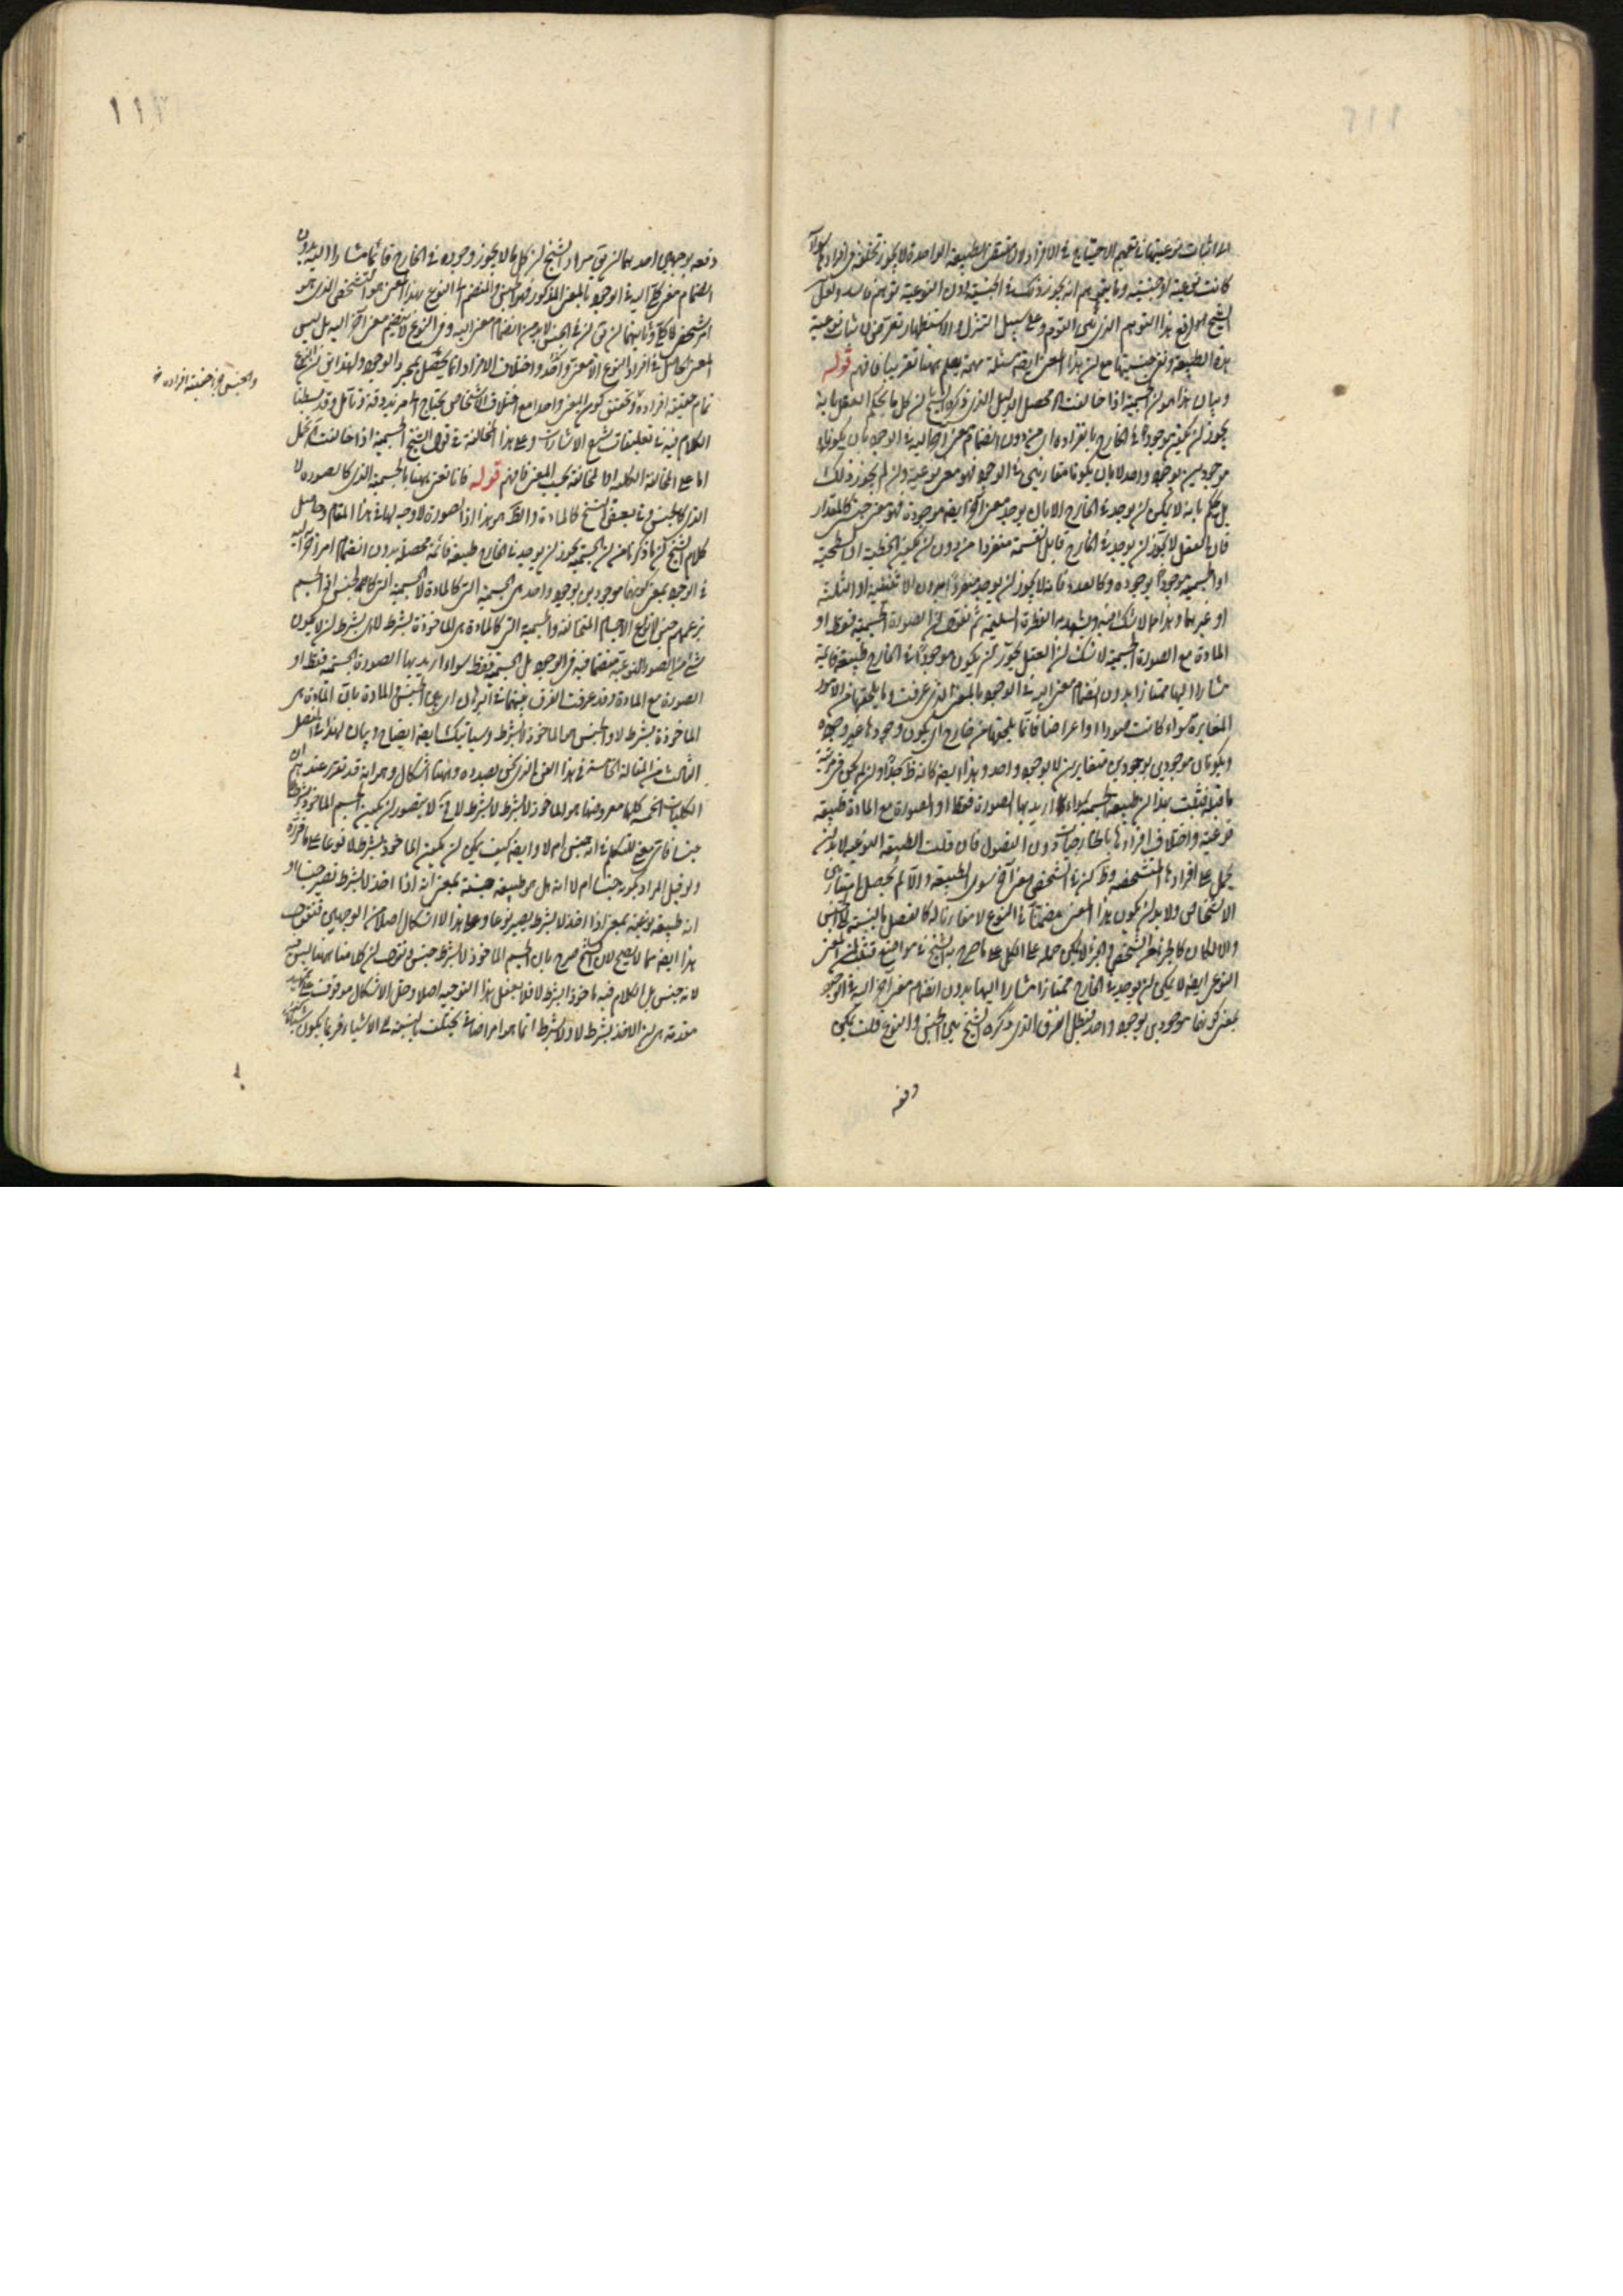 كانت نوعية او جنسية وما يتوهم انه يجوز ذلك في الجنسية دون النوعية توهم فاسد ولعل
الشيخ
هذه الطبيعة ونفي جنسيتها مع ان هذا المعنى ايضا مسئلة مهمة يعلم ههنا تقريبا فافهم قوله
وبيان هذا هو ان الجسمية اذا خالفت اه محصل الدليل الذي ذكره الشيخ ان كل ما يحكم العقل بانه
يجوز ان يكون موجودا في الخارج بانفراده اي من دون انضمام معنى آخر اليه في الوجود بان يكونا
موجودين بوجود واحد لا بان يكونا متقارنين في الوجود فهو معنى نوعي وان لم يجوز ذلك
بل حكم بانه لا يمكن ان يوجد في الخارج الا بان يوجد معنى آخر ايضا موجودة فهو معنى جنسي كالمقدار
فان العقل لا يجوز ان يوجد في الخارج قابل القسمة منفردا من دون ان يكون الخطية او السطحية
او الجسمية موجودا بوجوده وكالعدد فانه لا يجوز ان يوجد منفردا بدون الاثنينية او الثلثة
او غيرهما وهذا مما لا شك فيه ويشهد به الفطرة السليمة ثم نقول ان الصورة الجسمية فقط او
المادة مع الصورة الجسمية لا شك ان العقل يجوز ان يكون موجودا في الخارج طبيعة قائمة
مشارا اليها ممتازا بدون انضمام معنى اليه في الوجود بالمعنى الذي عرفت وما يلحقها من الامور
المغايرة سواء كانت صورا او اعراضا فانما يلحقها من خارج اي يكون وجودها غير وجوده
ويكونان موجودين بوجودين متغايرين لا بوجود واحد وهذا ايضا كانه ظ جدا وان لم يكن في مرتبة
ما قبله فثبت بهذا ان طبيعة الجسمية سواء اريد بها الصورة فقط او الصورة مع المادة طبيعة
نوعية واختلاف افرادها بالخارجيات دون الفصول فان قلت الطبيعة النوعية لا بد ان
يحمل على افرادها المتشخصة وظ ان في الشخص معنى آخر سوى الطبيعة والا لم يحصل امتياز بين
الاشخاص ولا بد ان يكون هذا المعنى منضما في النوع لا مقارنا له كالفصل بالنسبة الى الجنس
والا لكان كالجزء من الشخص والجزء لا يمكن حمله على الكل على ما صرح به الشيخ في مواضع فثبت ان المعنى
النوعي ايضا لا يمكن ان يوجد في الخارج ممتازا مشارا اليها بدون انضمام معنى آخر اليه في الوجود
بمعنى كونهما موجودين بوجود واحد فبطل الفرق الذي ذكره الشيخ بين الجنس والنوع قلت يمكن
دفعه
١١٢
دفعه بوجهين احدهما ان يق مراد الشيخ ان كل ما لا يجوز وجوده في الخارج قائما مشارا اليه بدون
انضمام معنى كلي اليه في الوجود بالمعنى المذكور فهو جنس والمنضم الى النوع بهذا المعنى هو التشخص الذي هو
امر شخصي لا كلي وثانيهما ان يق ان في الجنس لا بد من انضمام معنى اليه وفي النوع لا ينضم معنى آخر اليه بل ليس
المعنى الحاصل في افراد النوع الا معنى واحد واختلاف الافراد انما يحصل بمجرد الوجود ولهذا يق ان النوع
تمام حقيقة افراده وتحقيق كون المعنى واحدا مع اختلاف الاشخاص يحتاج الى مزيد دقة وتأمل وقد بسطنا
والجنس جزء حقيقة افراده
الكلام فيه في تعليقات شرح الاشارات وعلى هذا المخالفة في قول الشيخ الجسمية اذا خالفت اه تحمل
اما على المخالفة الكلية او المخالفة بحسب المعنى فافهم قوله فانا نعني ههنا بالجسمية الذي كالصورة لا
الذي كالجنس وفي بعض النسخ كالمادة والظ هو هذا اذ الصورة لا وجه لها في هذا المقام وحاصل
كلام الشيخ ان ما ذكرنا من ان الجسمية يجوز ان يوجد في الخارج طبيعة قائمة محصلة بدون انضمام امر آخر اليه
في الوجود بمعنى كونهما موجودين بوجود واحد هي الجسمية التي كالمادة لا الجسمية التي كالجنس اذ الجسم
بزعمهم جنس لانواع الاجسام المتخالفة والجسمية التي كالمادة هي الماخوذة بشرط لا اي بشرط ان لا يكون
شيء من الصور النوعية منضما فيه في الوجود بل الجسمية فقط سواء اريد بها الصورة الجسمية فقط او
الصورة مع المادة وقد عرفت الفرق بينهما
الماخوذة بشرط لا والجنس هو الماخوذ لا بشرط وسيأتيك ايضا ايضاح وبيان لهذا في الفصل
الثالث من المقالة الخامسة في هذا الفن الذي نحن بصدده وههنا اشكال وهو انه قد تقرر عندهم ان
الكليات الخمسة كلها معروضها هو الماخوذ لا بشرط لا بشرط لا فح لا يتصور ان يكون الجسم الماخوذ بشرط لا
جنسا فاي معنى للتكلم في انه جنس ام لا وايضا كيف يمكن ان يكون الماخوذ بشرط لا نوعا على ما قرره
ولو قيل المراد بكونه جنسا ام لا انه هل هو طبيعة جنسية بمعنى انه اذا اخذ لا بشرط تصير جنسا او
انه طبيعة نوعية بمعنى اذا اخذ لا بشرط يصير نوعا وعلى هذا لا اشكال اصلا من الوجهين فنقول
هذا ايضا مما لا يصح لان الشيخ صرح بان الجسم الماخوذ لا بشرط جنس ونقول ان كلامنا ههنا ليس فيه
لانه جنس بل الكلام فيه ماخوذا بشرط لا فلا يعقل هذا التوجيه اصلا وحل الاشكال موقوف على تمهيد
مقدمة هي ان الاخذ بشرط لا ولا بشرط انما هو امر اضافي يختلف بالنسبة الى الاشياء فربما يكون